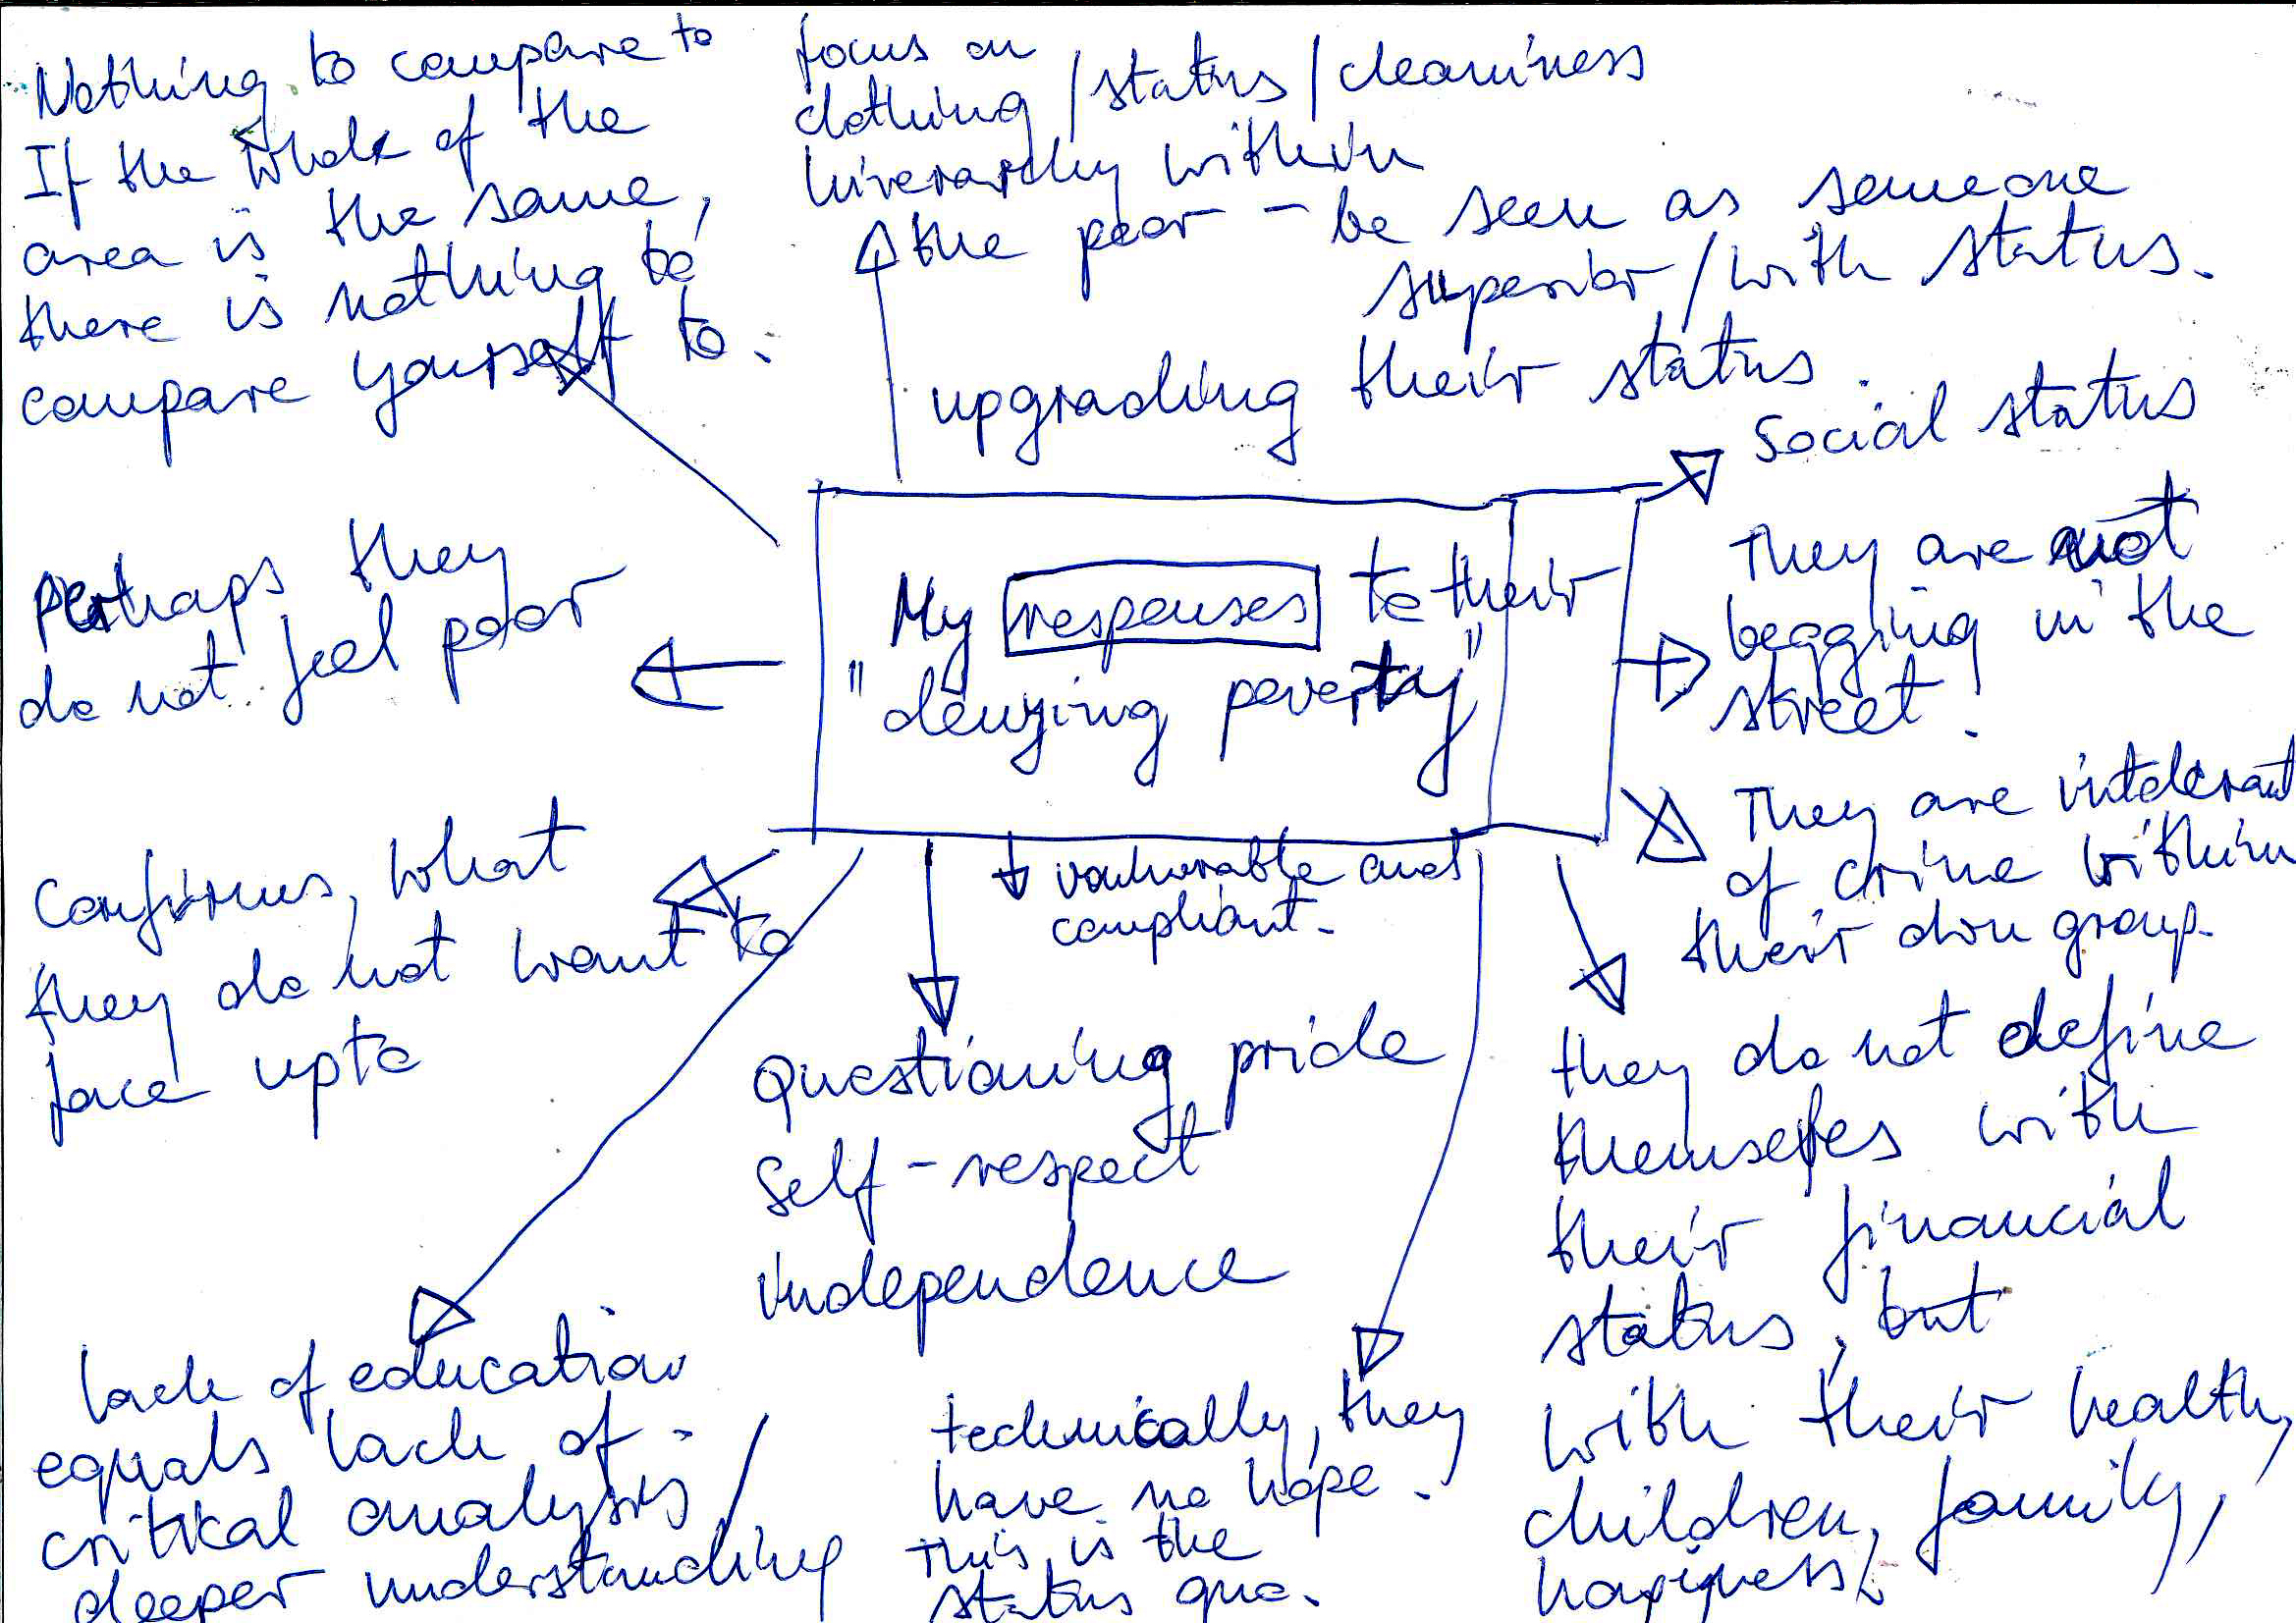 Nothing to compare to
If the whole of the
area is the same,
there is nothing to
compare yourself to.
focus on
clothing / status / cleaniness
hiverarchy within
the poor - be seen as someone
superior / with status.
upgrading their status.
Social status
They are not
begging in the
street!
They are intolerant
of crime within
their own group.
they do not define
themselfes with
their financial
status, but
with their health,
children, family,
happiness!
My responses to their
"denying poverty"
Perhaps they
do not feel poor
Confirms, what
they do not want to
face upto
vulnerable and
compliant.
Questioning pride
Self-respect
independence
lack of education
equals lack of
critical analysis /
deeper understanding
technically, they
have no hope.
This is the
status quo.